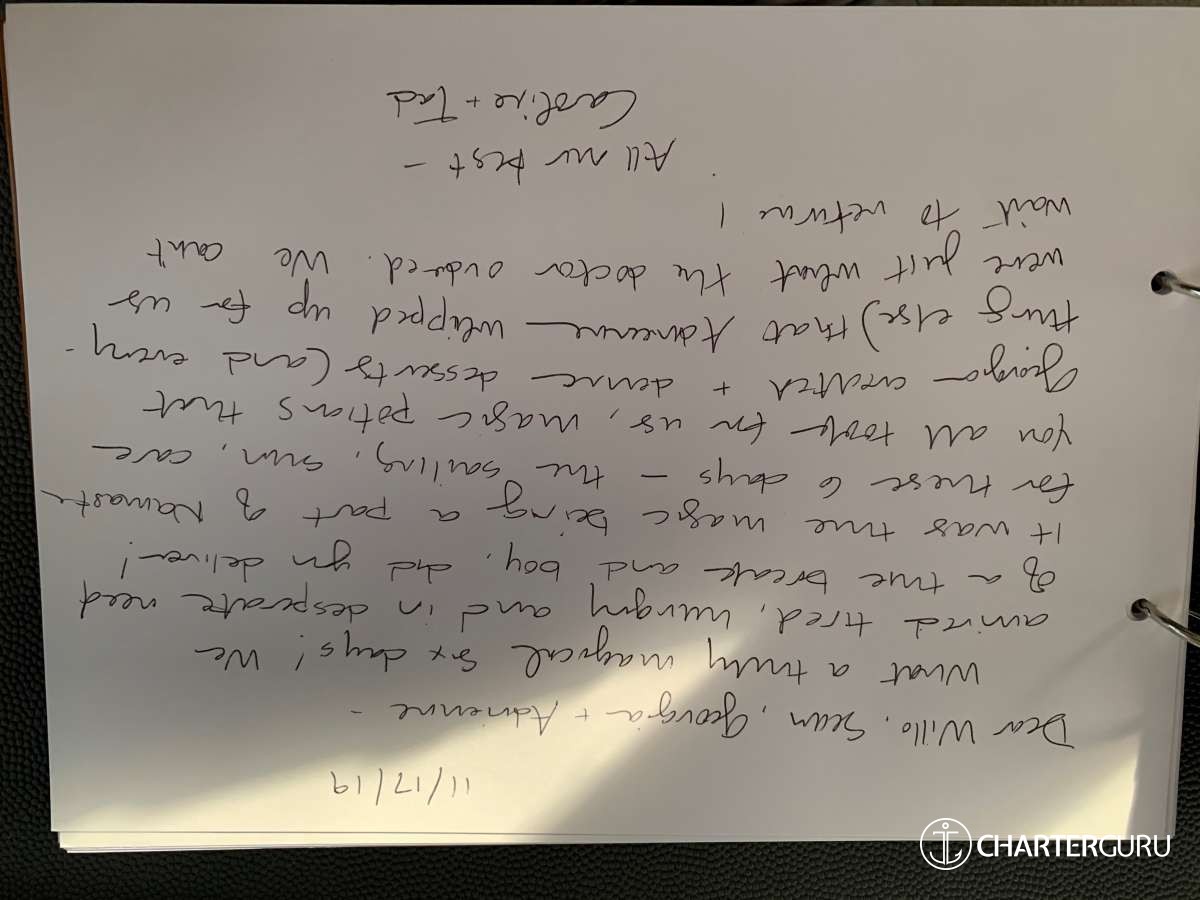 11/17/19
Dear Willo, Sean, Georgia + Adrienne -
What a truly magical six days! We
arrived tired, hungry and in desperate need
of a true break and boy, did you deliver!
It was true magic being a part of Namaste
for these 6 days - the sailing, sun, care
you all took for us, magic potions that
Georgia created + divine desserts (and every-
thing else) that Adrienne whipped up for us
were just what the doctor ordered. We can't
wait to return!
All our best -
Caroline + Tad
CHARTERGURU